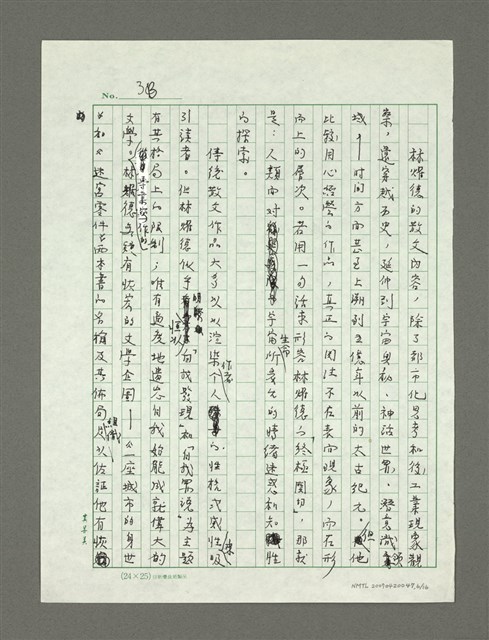 No. 38
林燿德的散文內容，除了都市化思考和後工業現象觀
察，還穿越歷史，延伸到宇宙奧祕、神話世界、潛意識領
域——時間方面甚至上溯到五億年以前的太古紀元。但他
比較用心經營的作品，真正的關注不在表面現象，而在形
而上的層次。若用一句話來形容林燿德的「終極關切」，那就
是：人類面對宇宙生命所產生的時緒迷惑和知性
的探索。
傳統散文作品大多以渲染作者個人的性格或感性吸
引讀者。但林燿德似乎明瞭「自我發現」和「自我界說」為主題
有其格局上的限制；唯有適度地遺忘自我始能成就偉大的
文學。林燿德有恢宏的文學企圖——《一座城市的身世
》和《迷宮零件》兩本書的名稱及其佈局組織足以佐證他有恢
的
(24×25)
NMTL 2009